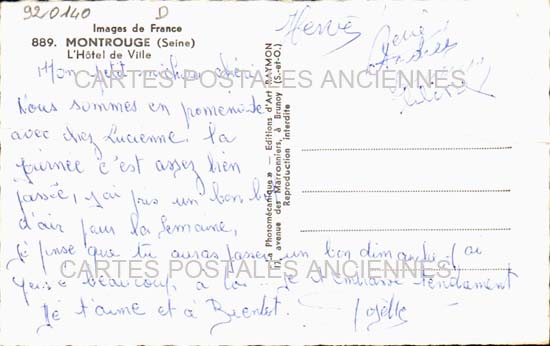 92/0140
D
Images de France
889. MONTROUGE (Seine)
L'Hôtel de Ville
Mon petit
Nous sommes en promenade
avec chez Lucienne. la
journée c'est assez bien
passée, j'ai pris un bon bol
d'air pour la semaine,
je pense que tu auras passé un bon dimanche. J'ai
beaucoup à toi. Je t'embrasse tendrement
Je t'aime et à Bientot. Josette
Hervé
« La Photomécanique » - Editions d'Art RAYMON
avenue des Marronniers, à Brunoy (S.-et-O.)
Reproduction interdite
CARTES POSTALES ANCIENNES
CARTES POSTALES ANCIENNES